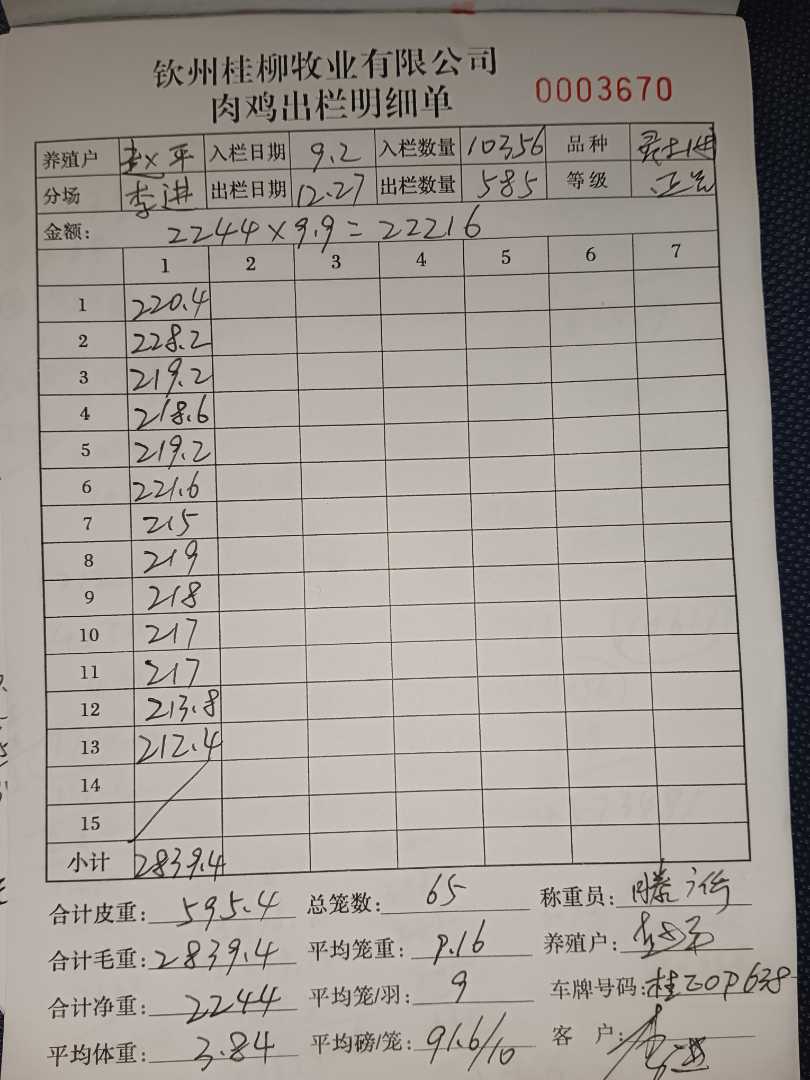 钦州桂柳牧业有限公司
肉鸡出栏明细单 0003670
养殖户 入栏日期 9.2 入栏数量 10356 品种
分场 李进 出栏日期 12.27 出栏数量 585 等级
金额: 2244×9.9=22216
1 2 3 4 5 6 7
1 220.4
2 228.2
3 219.2
4 218.6
5 219.2
6 221.6
7 215
8 219
9 218
10 217
11 217
12 213.8
13 212.4
14
15
小计 2839.4
合计皮重: 595.4 总笼数: 65 称重员:
合计毛重: 2839.4 平均笼重: 9.16 养殖户:
合计净重: 2244 平均笼/羽: 9 车牌号码:
平均体重: 3.84 平均磅/笼: 91.6/10 客 户: